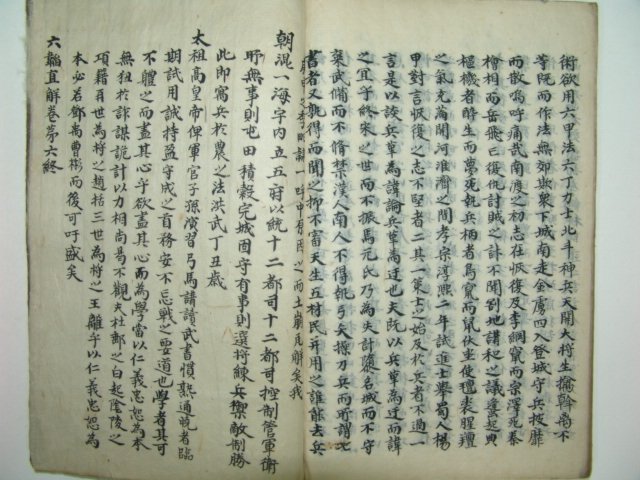 術欲用六甲法六丁力士北斗神兵天開大將生擒斡离不
等既而作法無効欺衆下城南走金虜四入登城守兵披靡
而散嗚呼痛哉南渡之初志在恢復及李綱竄而宗澤死秦
檜相而岳飛亡復仇討賊之計不聞割地講和之議蜂起典
樞機者醉生而夢死執兵柄者鳥竄而鼠伏坐使氊裘腥羶
之氣充滿関河淮濟之間孝宗淳熙二年試進士擧蜀人楊
甲對言恢復之志不堅者二其一策士以始及於兵者不過一
言是以談兵革為諱論兵革為迂也天既以兵革為迂而諱
之宜乎終宋之世而不振焉元氏乃為夫計隳名城而不守
棄武俻而不脩禁漢人南人不得執弓矢操刀兵而所謂七
書者又孰得而聞之抑不富天生五材民并用之誰能去兵
之而土崩瓦解矣我
朝混一海宇内立五府以統十二都司十二都司控制管軍衛
所無事則屯田積穀完城固守有事則選將練兵禦敵制勝
此即寓兵於農之法洪武丁丑歳
太祖高皇帝俾軍官子孫演習弓馬講讀武書慣熟通曉者臨
期試用誠持盈守成之首務安不忘戰之要道也學者其可
不體之而盡其心乎欲盡其心而為學當以仁義忠恕為本
無狃於詐謀詭計以力相尚曷不觀夫杜郵之白起陰陵之
項籍再世為将之趙括三世為将之王離乎以仁義忠恕為
本必若鄧禹曹彬而後可吁盛矣
六韜直解卷第六終